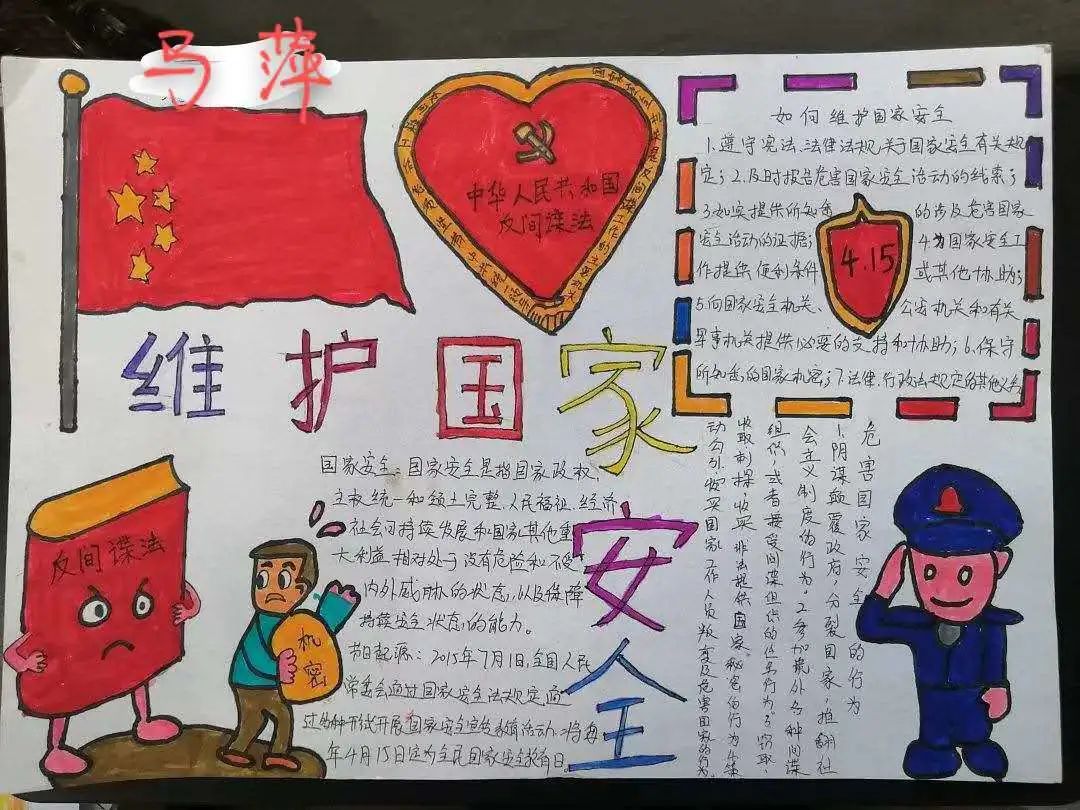 马萍
中华人民共和国
反间谍法
如何维护国家安全
1.遵守宪法、法律法规关于国家安全有关规
定；2.及时报告危害国家安全活动的线索；
3.如实提供所知悉的涉及危害国家
安全活动的证据；4.为国家安全工
作提供便利条件或其他协助；
5.向国家安全机关、公安机关和有关
军事机关提供必要的支持和协助；6.保守
所知悉的国家机密；7.法律、行政法规定的其他义务
4.15
维护国家安全
国家安全：国家安全是指国家政权、
主权统一和领土完整、人民福祉、经济
社会可持续发展和国家其他重
大利益相对处于没有危险和不受
内外威胁的状态，以及保障
持续安全状态的能力。
节日起源：2015年7月1日，全国人民
常委会通过国家安全法规定，通
过多种形式开展国家安全宣传教育活动，将每
年4月15日定为全民国家安全教育日。
反间谍法
机密
危害国家安全的行为
1.阴谋颠覆政府，分裂国家，推翻社
会主义制度的行为，2.参加境外各种间谍
组织或者接受间谍组织的任务行为，3.窃取、
收取刺探、收买、非法提供国家秘密的行为，4.策
动勾引、收买国家工作人员叛变及危害国家的行为。